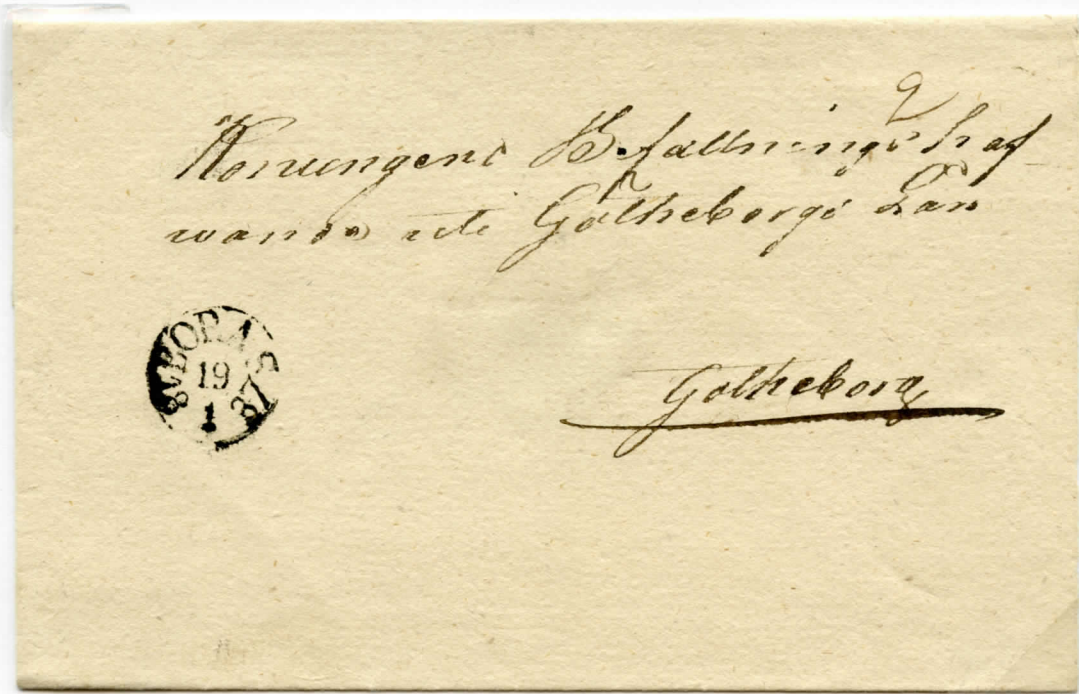 Konungens Befallningshaf
wande uti Götheborgs Län
BORÅS
19
1
Götheborg